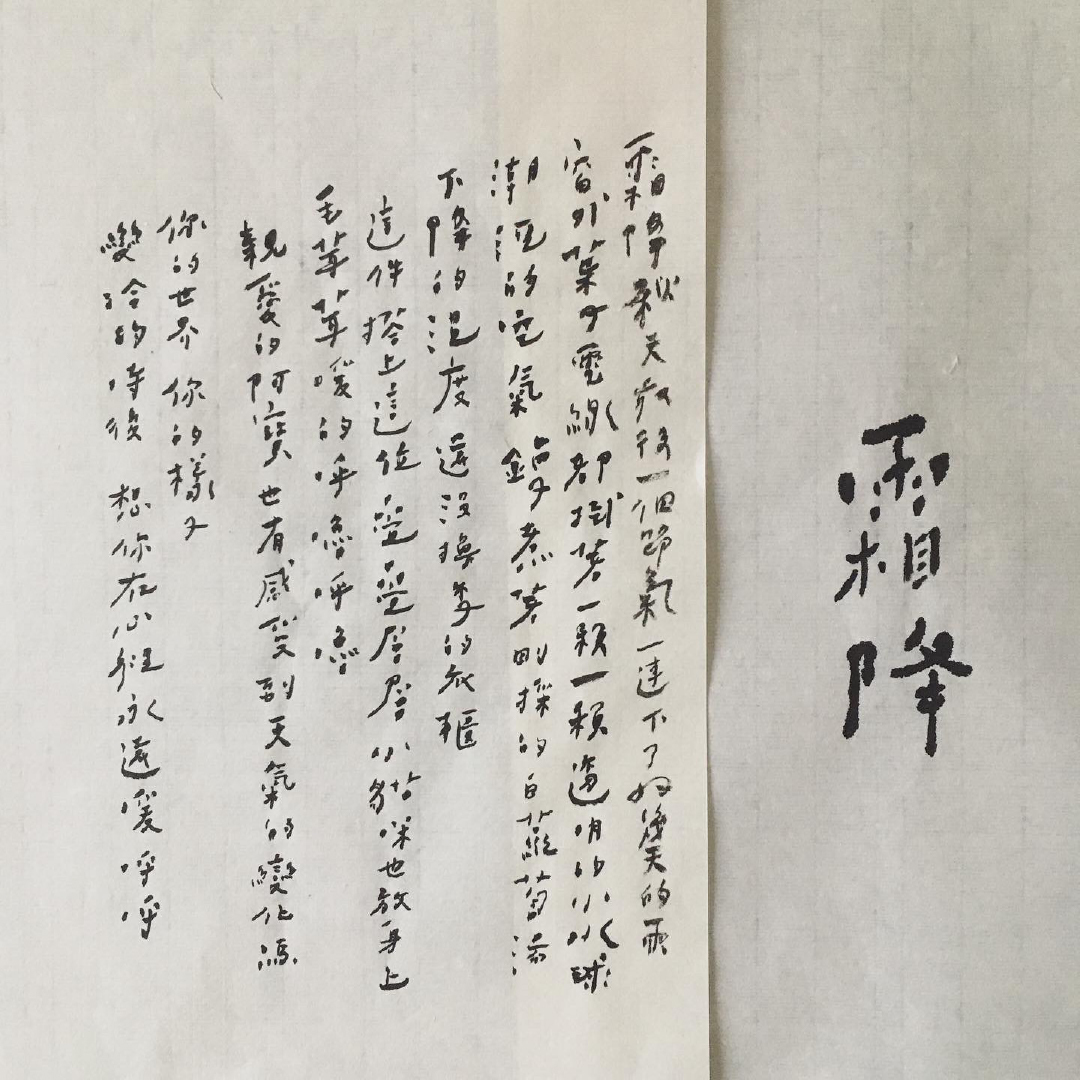 霜降
霜降 秋天最後一個節氣 一連下了好幾天的雨
窗外葉子電線都掛著一顆一顆透明的小水球
潮溼的空氣 鍋子煮著剛採的白蘿蔔湯
下降的溫度 還沒換季的衣櫃
這件搭上這位 疊疊層層 小貓咪也放身上
毛茸茸暖的呼嚕呼嚕
親愛的阿寶 也有感受到天氣的變化嗎
你的世界 你的樣子
變冷的時後 想你在心裡永遠暖呼呼